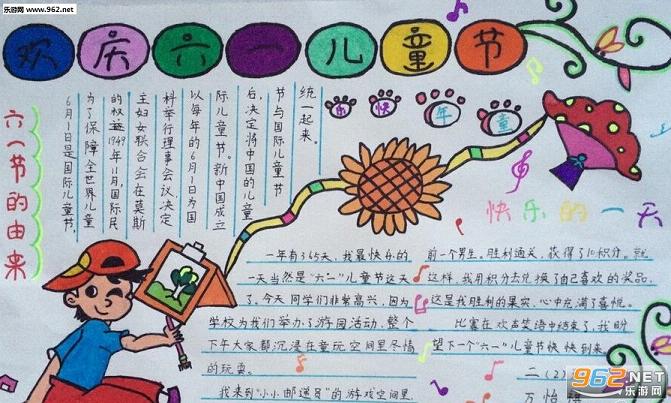 乐游网 www.962.net
欢庆六一儿童节
六一节的由来
6月1日是国际儿童节,
为了保障全世界儿童
的权益1949年11月,国际民
主妇女联合会在莫斯
科举行理事会议决定
以每年的6月1日为国
际儿童节。新中国成立
后,决定将中国的儿童
节与国际儿童节
统一起来。
乐快年童
快乐的一天
一年有365天,我最快乐的
一天当然是“六一”儿童节这天
了。今天同学们非常高兴,因为
学校为我们举办了游园活动,整个
下午大家都沉浸在童玩空间里尽情
的玩耍。
我来到“小小邮递员”的游戏空间里
前一个男生。胜利通关,获得了10积分。就
这样,我用积分去兑换了自己喜欢的奖品,
这是我胜利的果实,心中充满了喜悦。
比赛在欢声笑语中结束了,我盼
望下一个“六一”儿童节快快到来。
二(2)
万怡
962.NET
乐游网